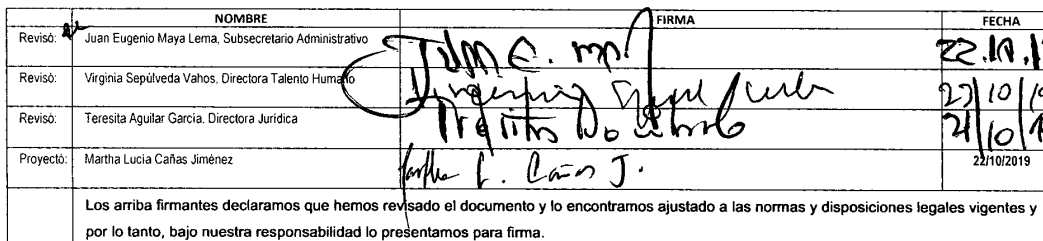 NOMBRE FIRMA FECHA
Revisó: Juan Eugenio Maya Lema, Subsecretario Administrativo Juan E. m
Revisó: Virginia Sepúlveda Vahos, Directora Talento Humano Virginia
Revisó: Teresita Aguilar Garcia, Directora Jurídica
Proyectó: Martha Lucia Cañas Jiménez Martha L. Cañas J. 22/10/2019
Los arriba firmantes declaramos que hemos revisado el documento y lo encontramos ajustado a las normas y disposiciones legales vigentes y
por lo tanto, bajo nuestra responsabilidad lo presentamos para firma.